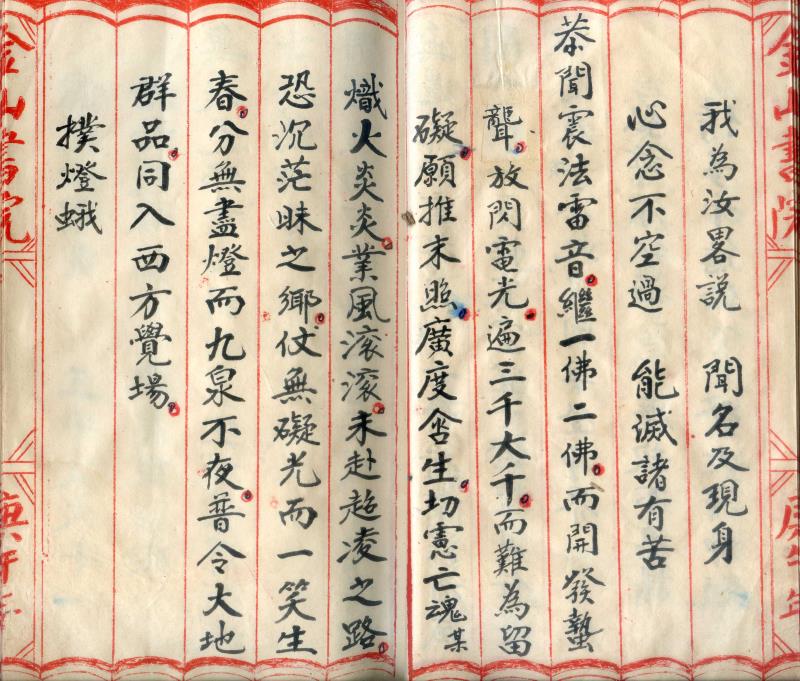 金山書院
庚午年
我為汝畧説 聞名及現身
心念不空過 能滅諸有苦
恭聞震法雷音繼一佛二佛而開發蟄
聾放閃電光遍三千大千而難為留
礙願推末照廣度含生切憲亡魂某
熾火炎炎業風滚滚未赴超凌之路
恐沉茫昧之鄉仗無礙光而一笑生
春分無盡燈而九泉不夜普令大地
群品同入西方覺場
撲燈蛾
金山書院
庚午年